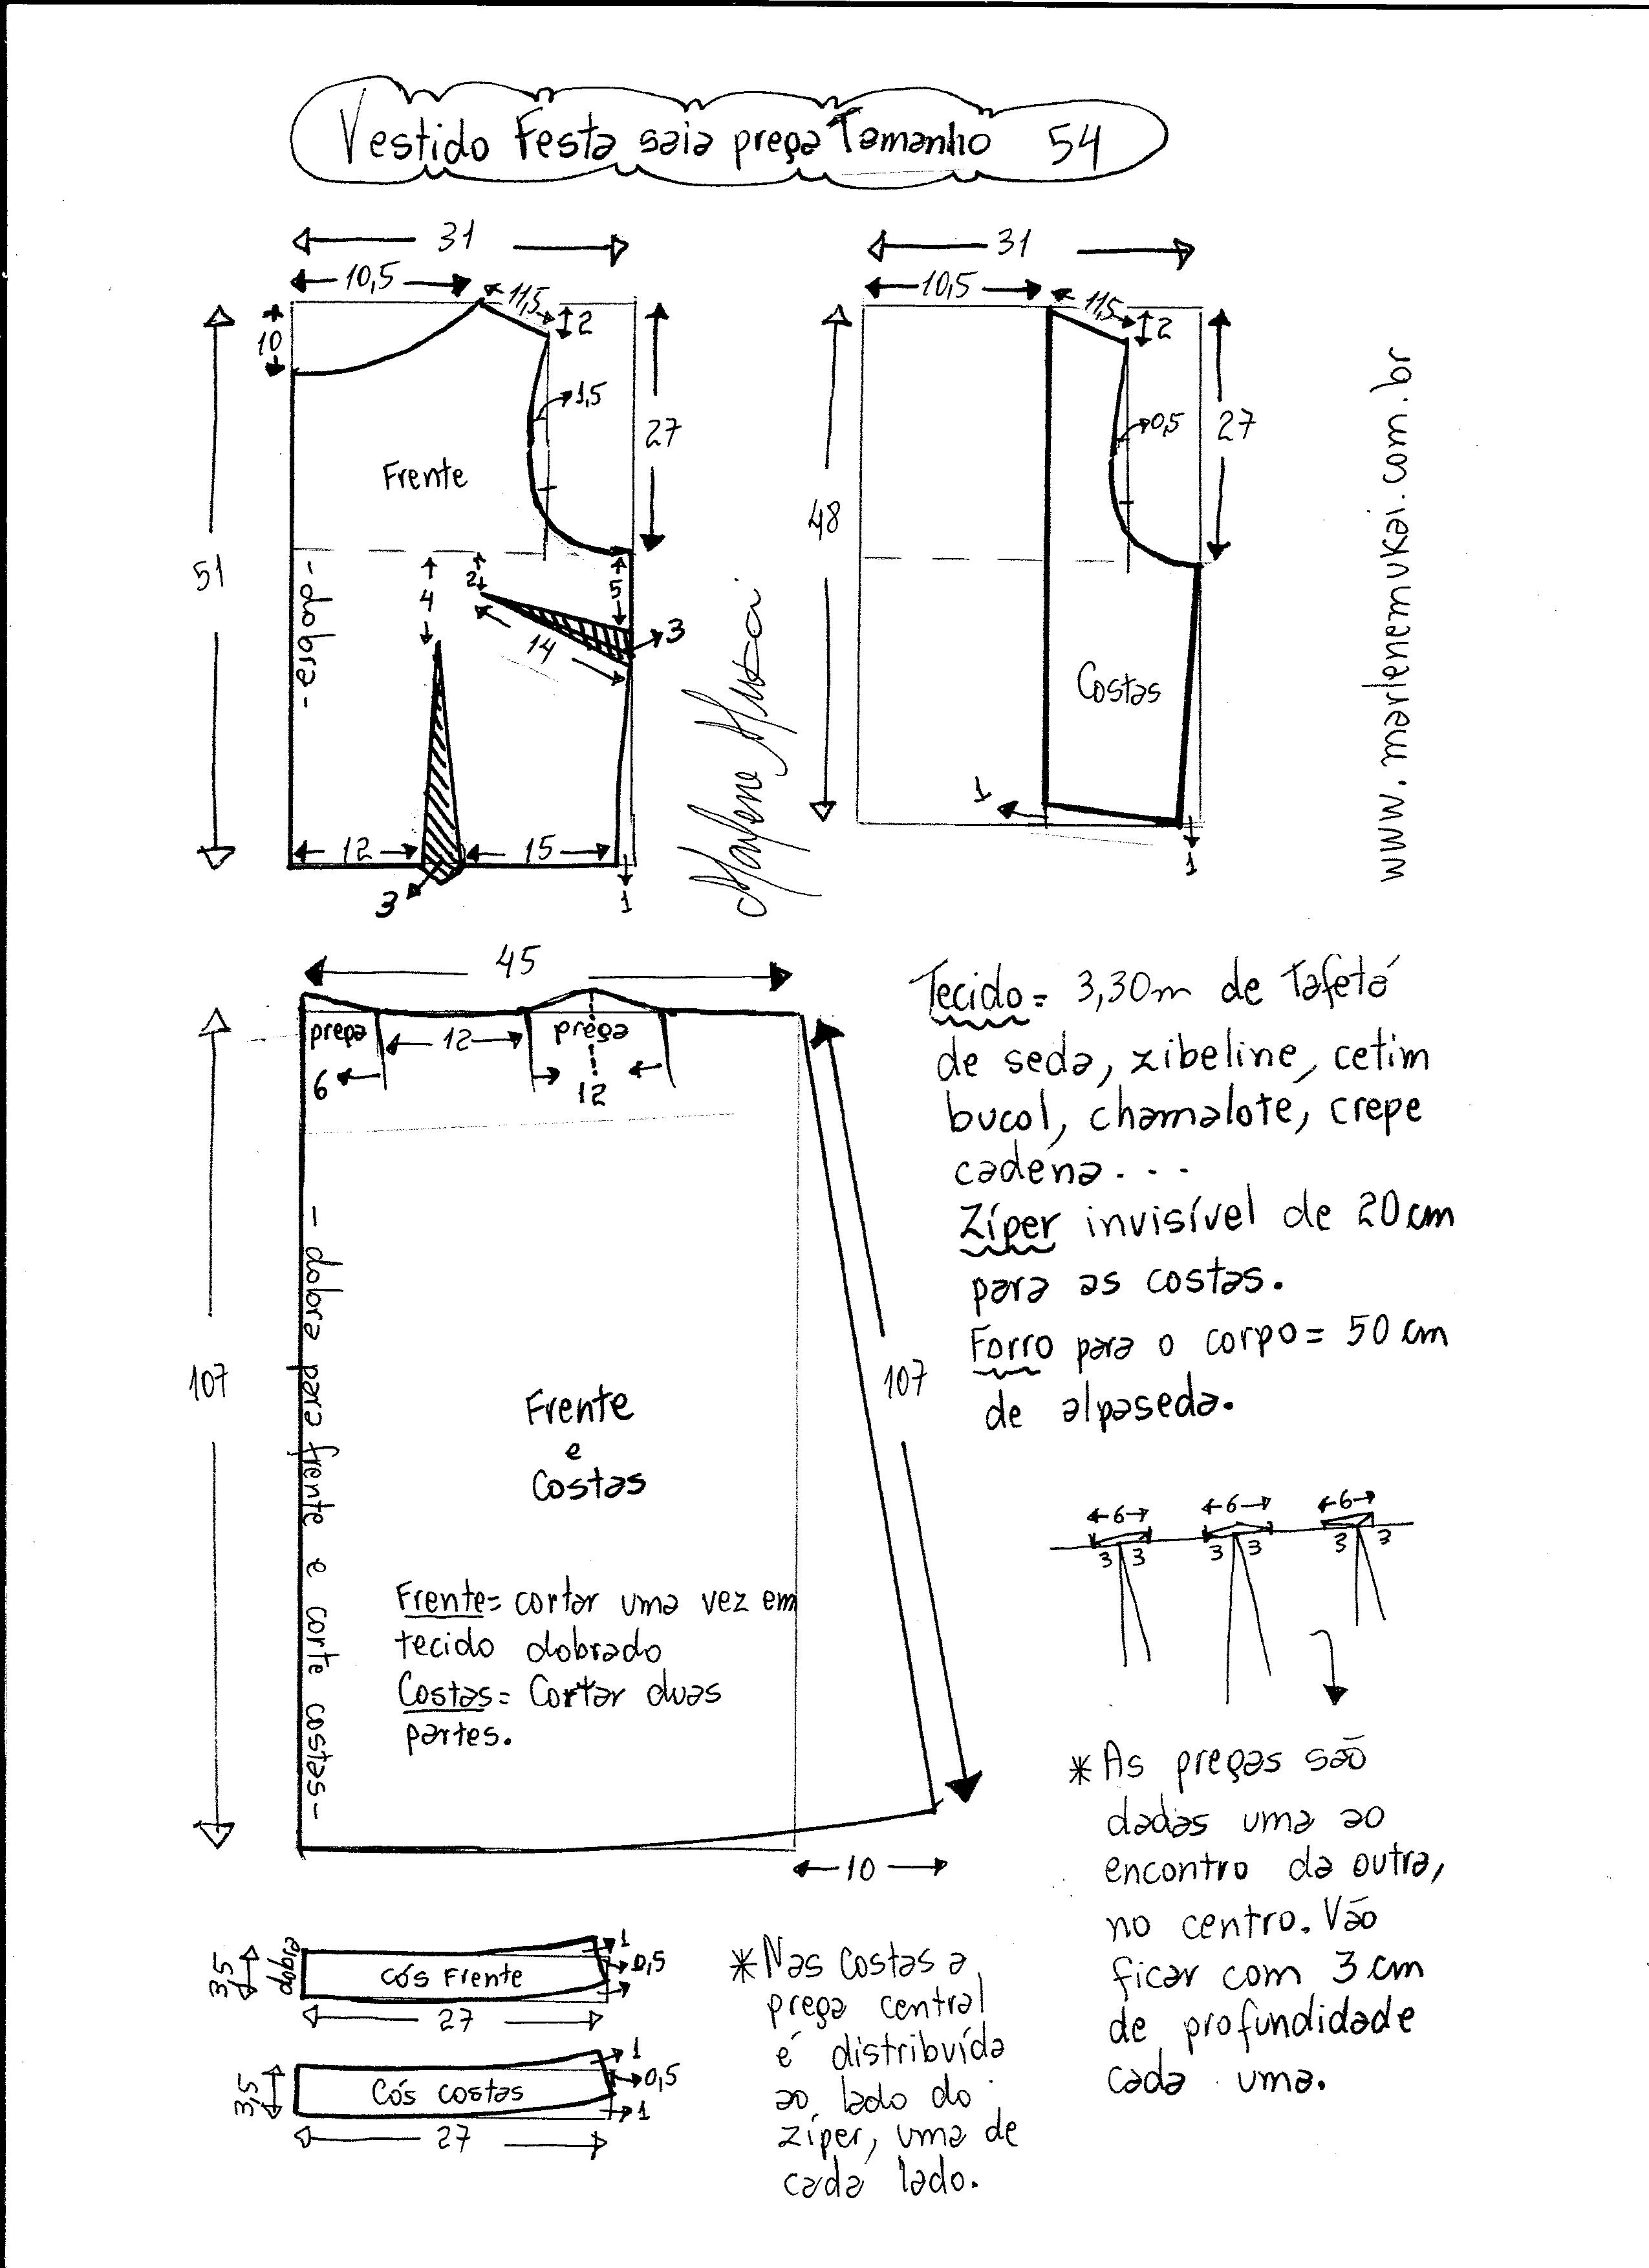 Vestido Festa saia prega Tamanho 54
31
10,5
11,5
2
10
1,5
27
Frente
51
- dobra -
4
2
5
14
3
12
15
3
1
Marlene Mukai
31
10,5
11,5
2
0,5
27
48
Costas
1
1
www.marlenemukai.com.br
45
prega
12
prega
6
12
107
- dobra para frente e corte costas -
107
Frente
e
Costas
Frente= cortar uma vez em
tecido dobrado
Costas= Cortar duas
partes.
10
Tecido= 3,30m de Tafetá
de seda, zibeline, cetim
bucol, chamalote, crepe
cadena...
Zíper invisível de 20cm
para as costas.
Forro para o corpo= 50cm
de alpaseda.
6
6
6
3 3
3 3
3 3
*As pregas são
dadas uma ao
encontro da outra,
no centro. Vão
ficar com 3cm
de profundidade
cada uma.
dobra
3,5
cós Frente
1
0,5
27
3,5
Cós costas
1
0,5
1
27
*Nas costas a
prega central
é distribuída
ao lado do
zíper, uma de
cada lado.